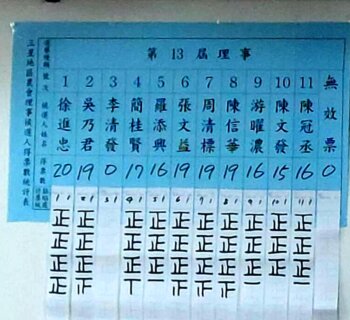 三星地區農會理事候選人得票數統計表
第 13 屆理事
選舉種類
號次 1 2 3 4 5 6 7 8 9 10 11
候選人姓名 徐進忠 吳乃君 李清發 簡桂賢 羅添興 張文益 周清標 陳信華 游曜濃 陳文發 陳冠丞 無效票
得票數 20 19 0 17 16 19 19 19 16 15 16 0
1 2 3 4 5 6 7 8 9 10 11
正 正 正 正 正 正 正 正 正 正
正 正 正 正 正 正 正 正 正 正
正 正 正 正 正 正 正 正 正 正
正